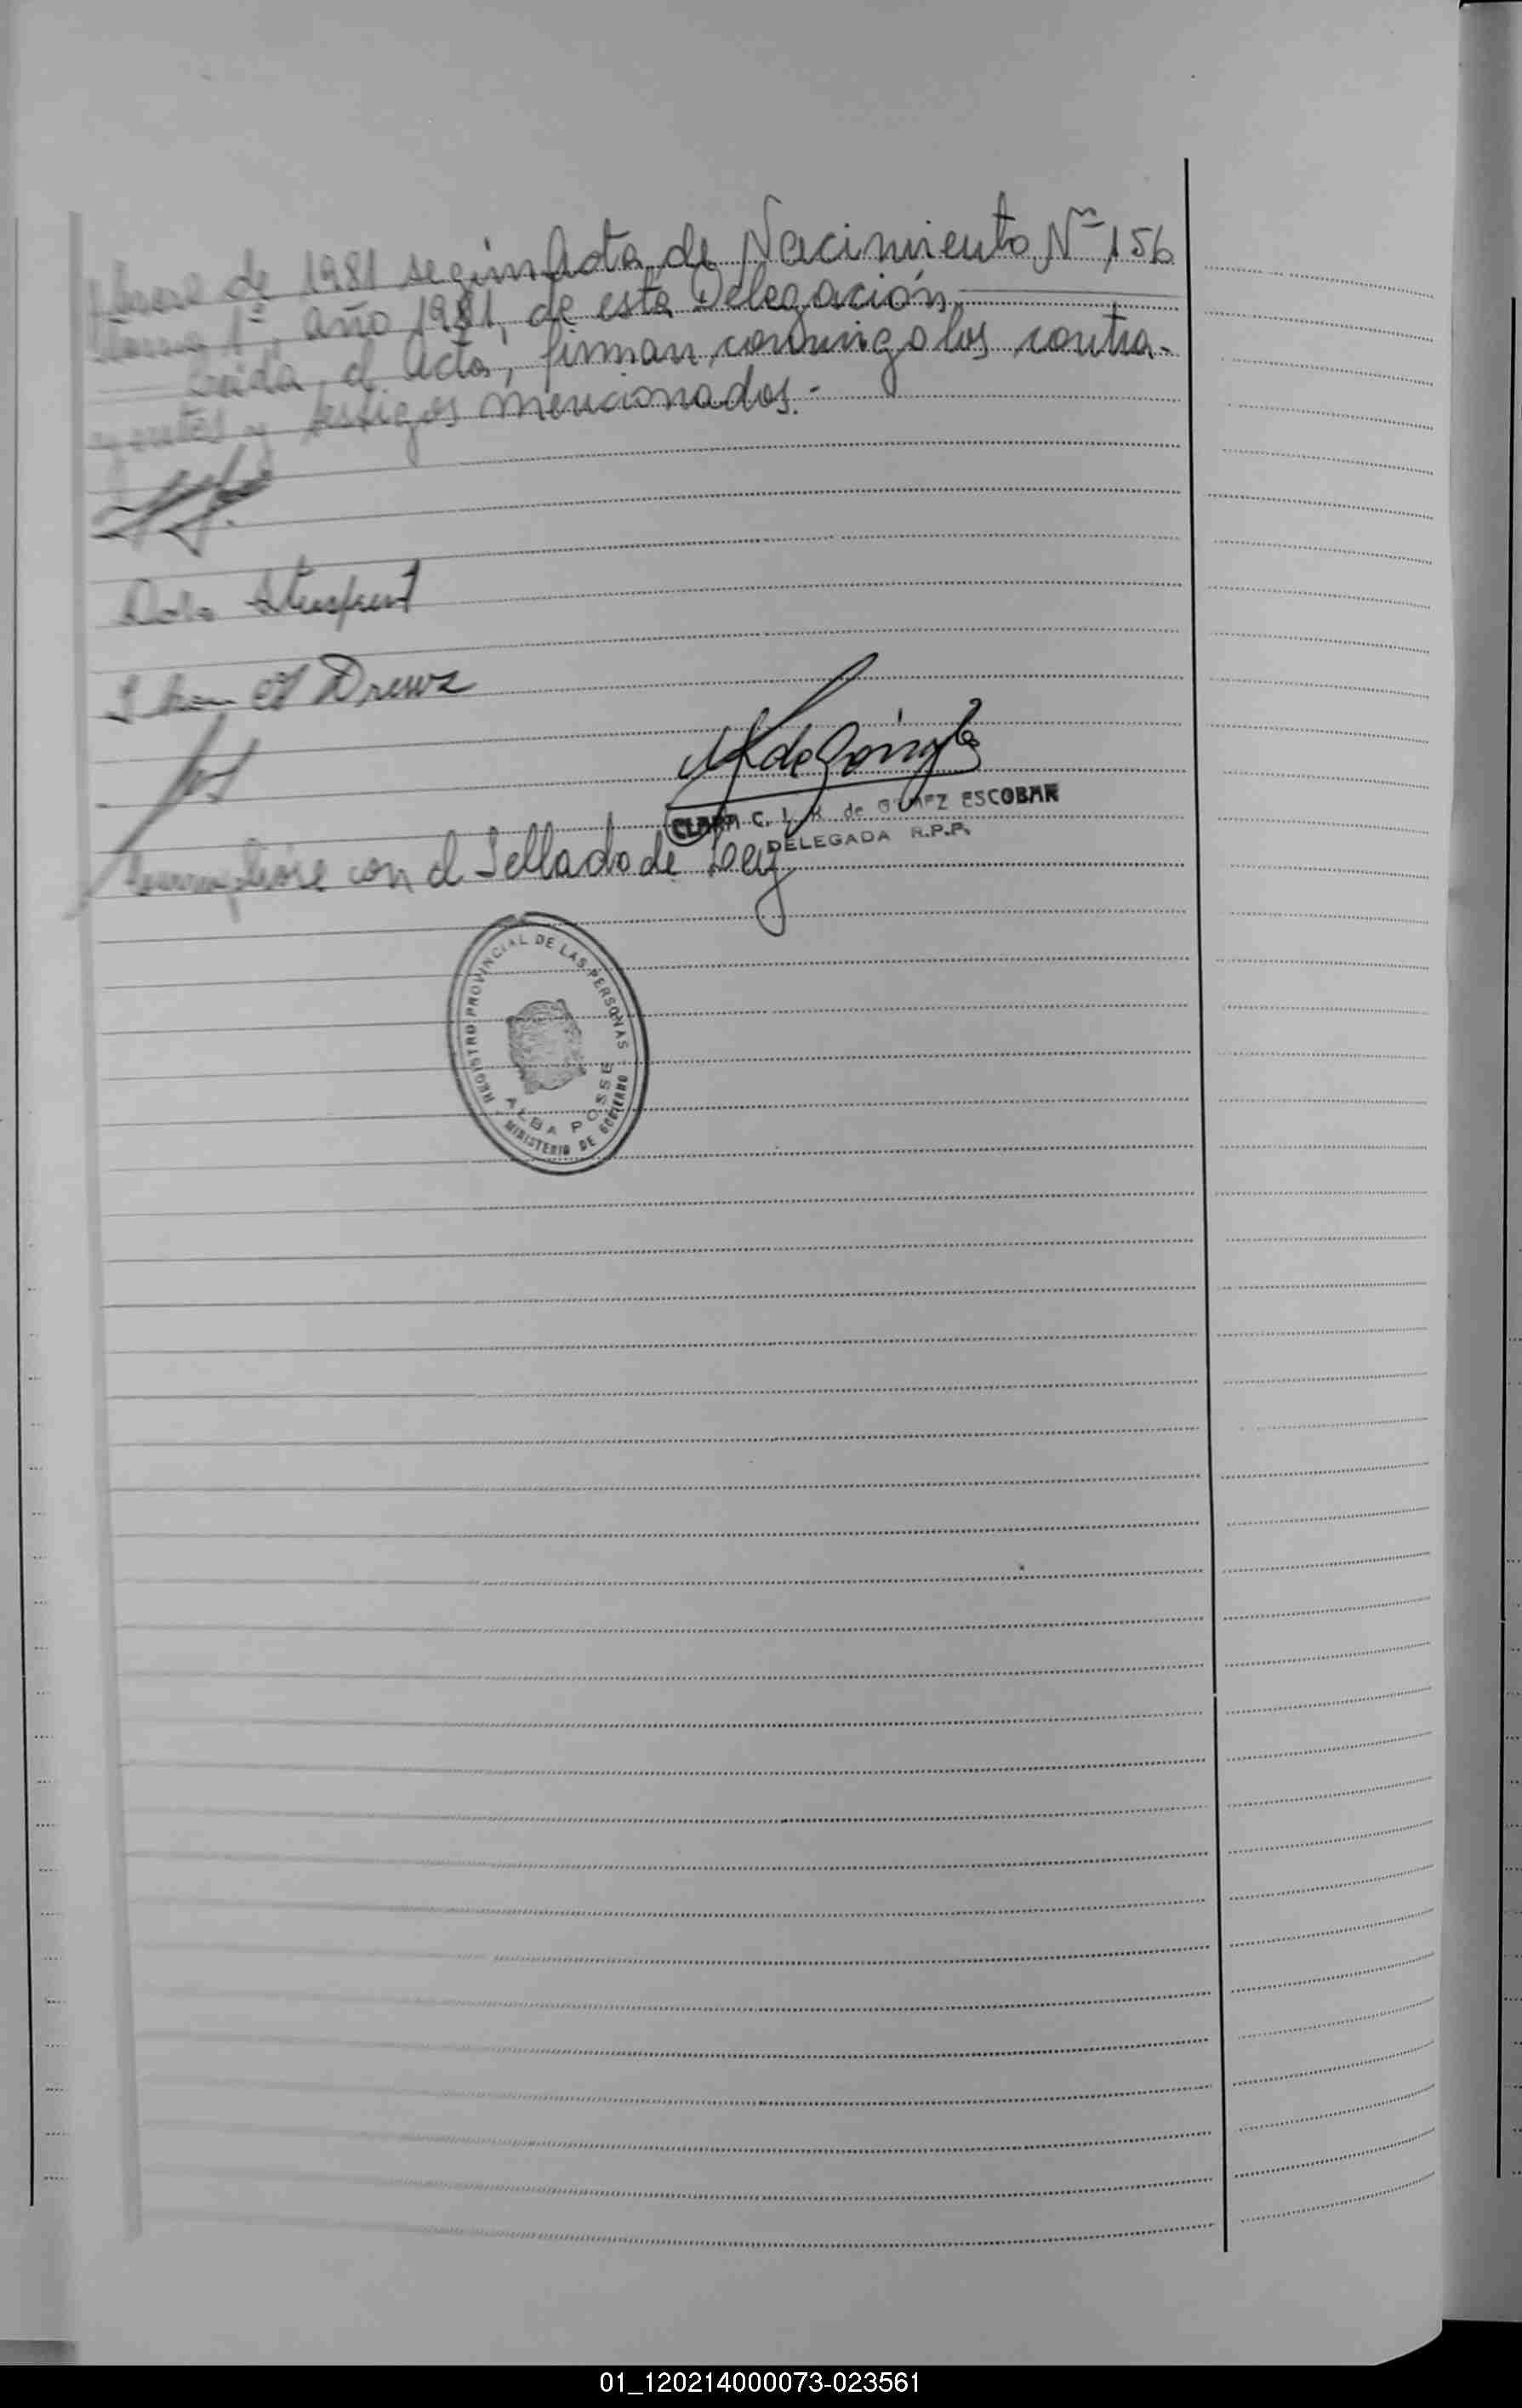 de 1981 según Acta de Nacimiento Nº 156
Tomo 1º, año 1981, de esta Delegación.
Leída el Acta, firman conmigo los contra-
yentes y testigos mencionados.-
Drewz
CLARA C. L. K. de GOMEZ ESCOBAR
DELEGADA R.P.P.
con el Sellado de Ley
REGISTRO PROVINCIAL DE LAS PERSONAS
ALBA POSSE
MINISTERIO DE GOBIERNO
01_120214000073-023561